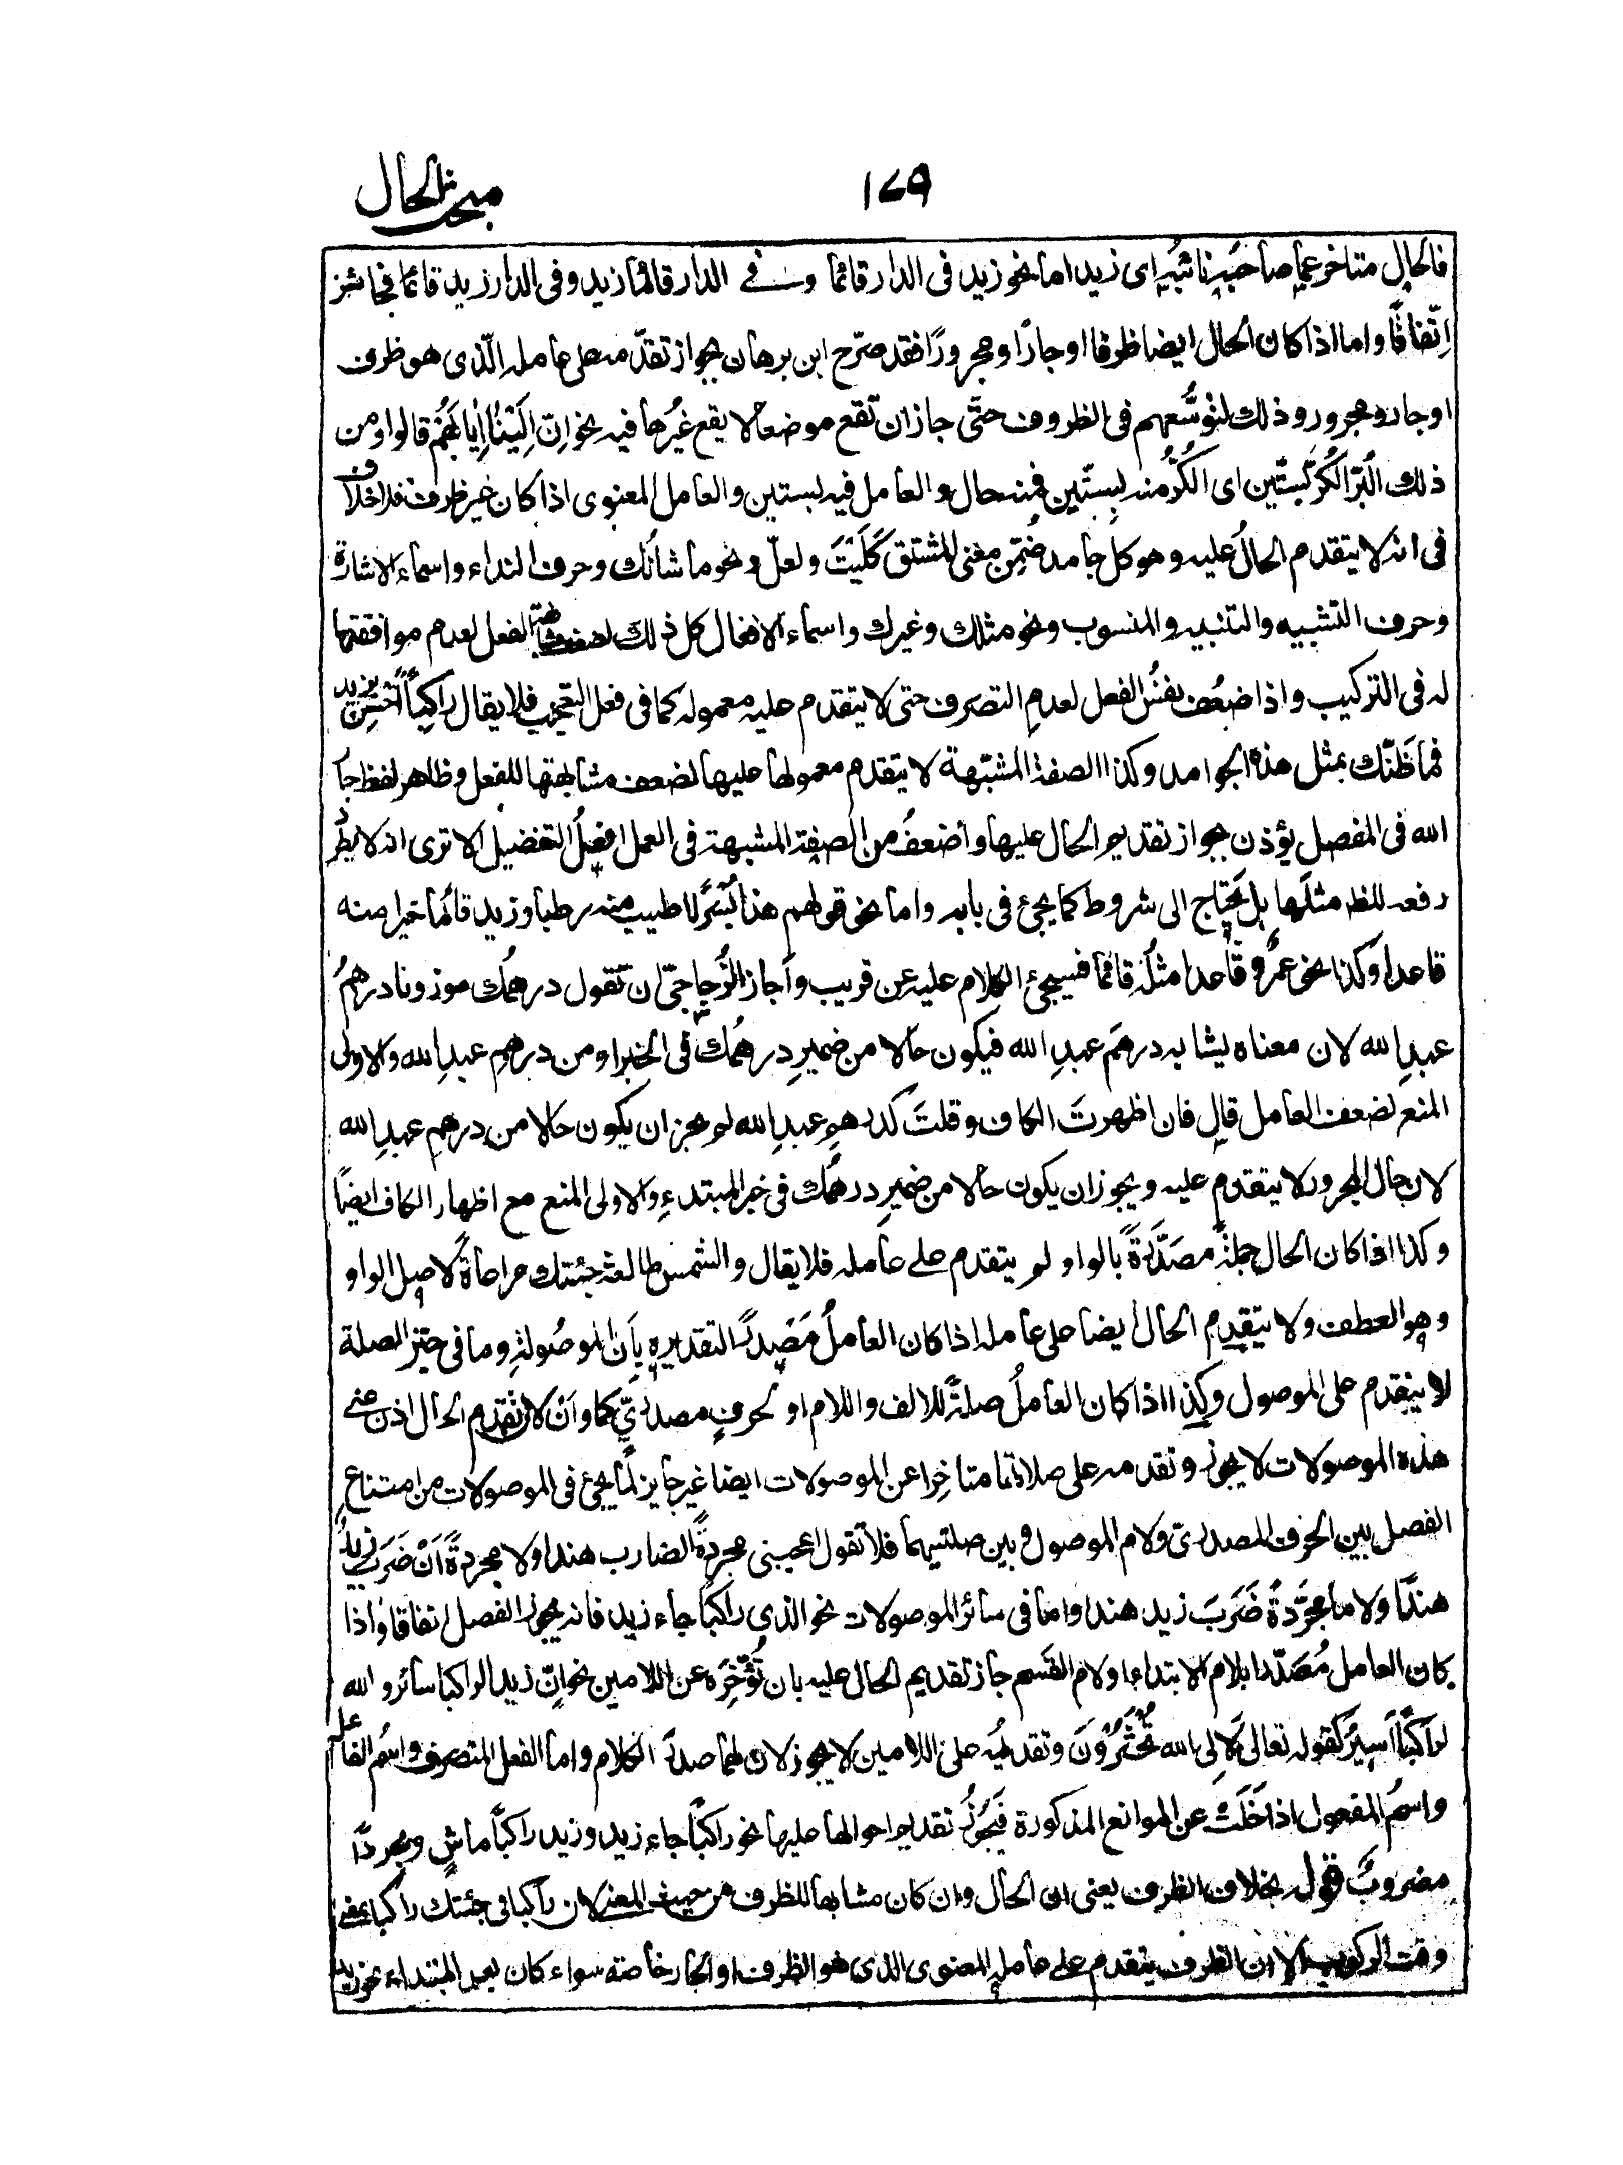 مبحث الحال
١٧٩
فالحال متاخر عما صاحبه نائبه اى زيد اما نحو زيد فى الدار قائما وفى الدار قائما زيد وفى الدار زيد قائما فجائز
اتّفاقًا واما اذا كان الحال ايضا ظرفا او جارًا ومجرورًا فقد صرّح ابن برهان بجواز تقدّمه على عامله الّذى هو ظرف
او جار ومجرور وذلك لتوسُّعهم فى الظروف حتّى جاز ان تقع موضعا لا يقع غيرُها فيه نحو اِنّ اِلَيْنَا اِيَابَهُمْ قالوا ومن
ذلك البُرّ الكُرّ بستّين اى الكُرُّ منه بِستّين فمنه حال والعامل فيه بستين والعامل المعنوى اذا كان غير ظرف فلا خلاف
فى انه لا يتقدم الحالُ عليه وهو كل جامد ضُمِّن معنى المشتق كَلَيْتَ ولعلّ ونحو ما شانُك وحرف النداء واسماء الاشارة
وحرف التشبيه والتنبيه والمنسوب ونحو مثلك وغيرك واسماء الافعال كل ذلك لضعف مشابهة الفعل لعدم موافقتها
له فى التركيب واذا ضعُف نفسُ الفعل لعدمِ التصرف حتى لا يتقدم عليه معموله كما فى فعل التعجب فلا يقال راكبًا اَحْسِن بزيد
فما ظَنّك بمثل هذه الجوامد وكذا الصفة المشبّهة لا يتقدم معمولها عليها لضعف مشابهتها للفعل وظاهر لفظ جار
الله فى المفصل يؤذن بجواز تقديم الحال عليها واضعفُ من الصفة المشبهة فى العمل افعلُ التفضيل الا ترى انه لا يطّرد
رفعه للظاهر مثلَها بل يحتاج الى شروط كما يجئ فى بابه واما نحو قولهم هذا بُسْرًا اطيب منه رطبا وزيد قائما خير منه
قاعدا وكذا نحو عمرٌو قاعدا مثلُه قائما فسيجئ الكلام عليه عن قريب واجاز الزُّجاجىّ ان تقول درهمُك موزونا درهمُ
عبدِ الله لان معناه يشابه درهمَ عبدِ الله فيكون حالا من ضميرِ درهمُك فى الخبر او من درهمِ عبدِ الله والاولى
المنع لضعف العامل قال فان اظهرتَ الكاف وقلتَ كدرهمِ عبدِ الله لم يجز ان يكون حالا من درهمِ عبدِ الله
لان حال المجرور لا يتقدم عليه ويجوز ان يكون حالا من ضميرِ درهمُك فى خبر المبتدءِ والاولى المنع مع اظهار الكاف ايضًا
وكذا اذا كان الحال جملةً مصَدَّرةً بالواو لم يتقدم على عامله فلا يقال والشمس طالعة جئتك مراعاةً لاصل الواو
وهو العطف ولا يتقدم الحال ايضا على عامله اذا كان العاملُ مَصْدرًا لتقديره بِاَن الموصُولةِ وما فى حيّز الصلة
لا يتقدم على الموصول وكذا اذا كان العاملُ صلةً للالف واللام او لحرفٍ مصدرىّ كما وَانْ لان تقدم الحال اذن على
هذه الموصولات لا يجوز وتقدمه على صلاتها متاخِرا عن الموصولات ايضا غير جايز لما يجئ فى الموصولات من امتناع
الفصل بين الحرف المصدرىّ ولام الموصول وبين صلتيهما فلا تقول اعجبنى مجردةً الضارب هندا ولا مجردةً اَنْ ضَرَبَ زيدٌ
هندًا ولا ما مجرّدةً ضَرَبَ زيد هندا واما فى سائر الموصولات نحو الذى راكبًا جاء زيد فانه يجوز الفصل اتفاقا واذا
كان العامل مُصَدّرا بلام الابتداء او لام القَسم جاز تقديم الحال عليه بان تُؤَخِّرَه عن اللامين نحو اِنّ زيدا لراكبا سائر و الله
لراكبًا اَسِيرُ كقوله تعالى لَاِلى الله تُحْشَرُوْنَ وتقديمُه على اللامين لا يجوز لان لهما صدرَ الكلام واما الفعل المتصرف واسمُ الفاعل
واسمُ المفعول اذا خَلَتْ عن الموانع المذكورة فيَجُوزُ تقديم احوالها عليها نحو راكبًا جاء زيد وزيد راكبًا ماشٍ ومجردًا
مضروبٌ قوله بخلاف الظرف يعنى ان الحال وان كان مشابها للظرف من حيث المعنى لان راكبا فى جئتك راكبا بمعنى
وقت الركوب الا ان الظرف يتقدم على عامله المعنوى الذى هو الظرف او الجار خاصته سواء كان بعد المبتداء نحو زيد